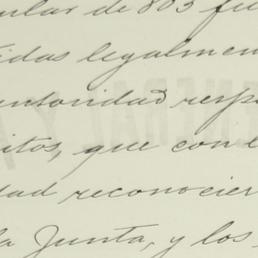 ular de 803 fu
idas legalmen
autoridad resp
itos, que con l
dad reconocier
la Junta, y los